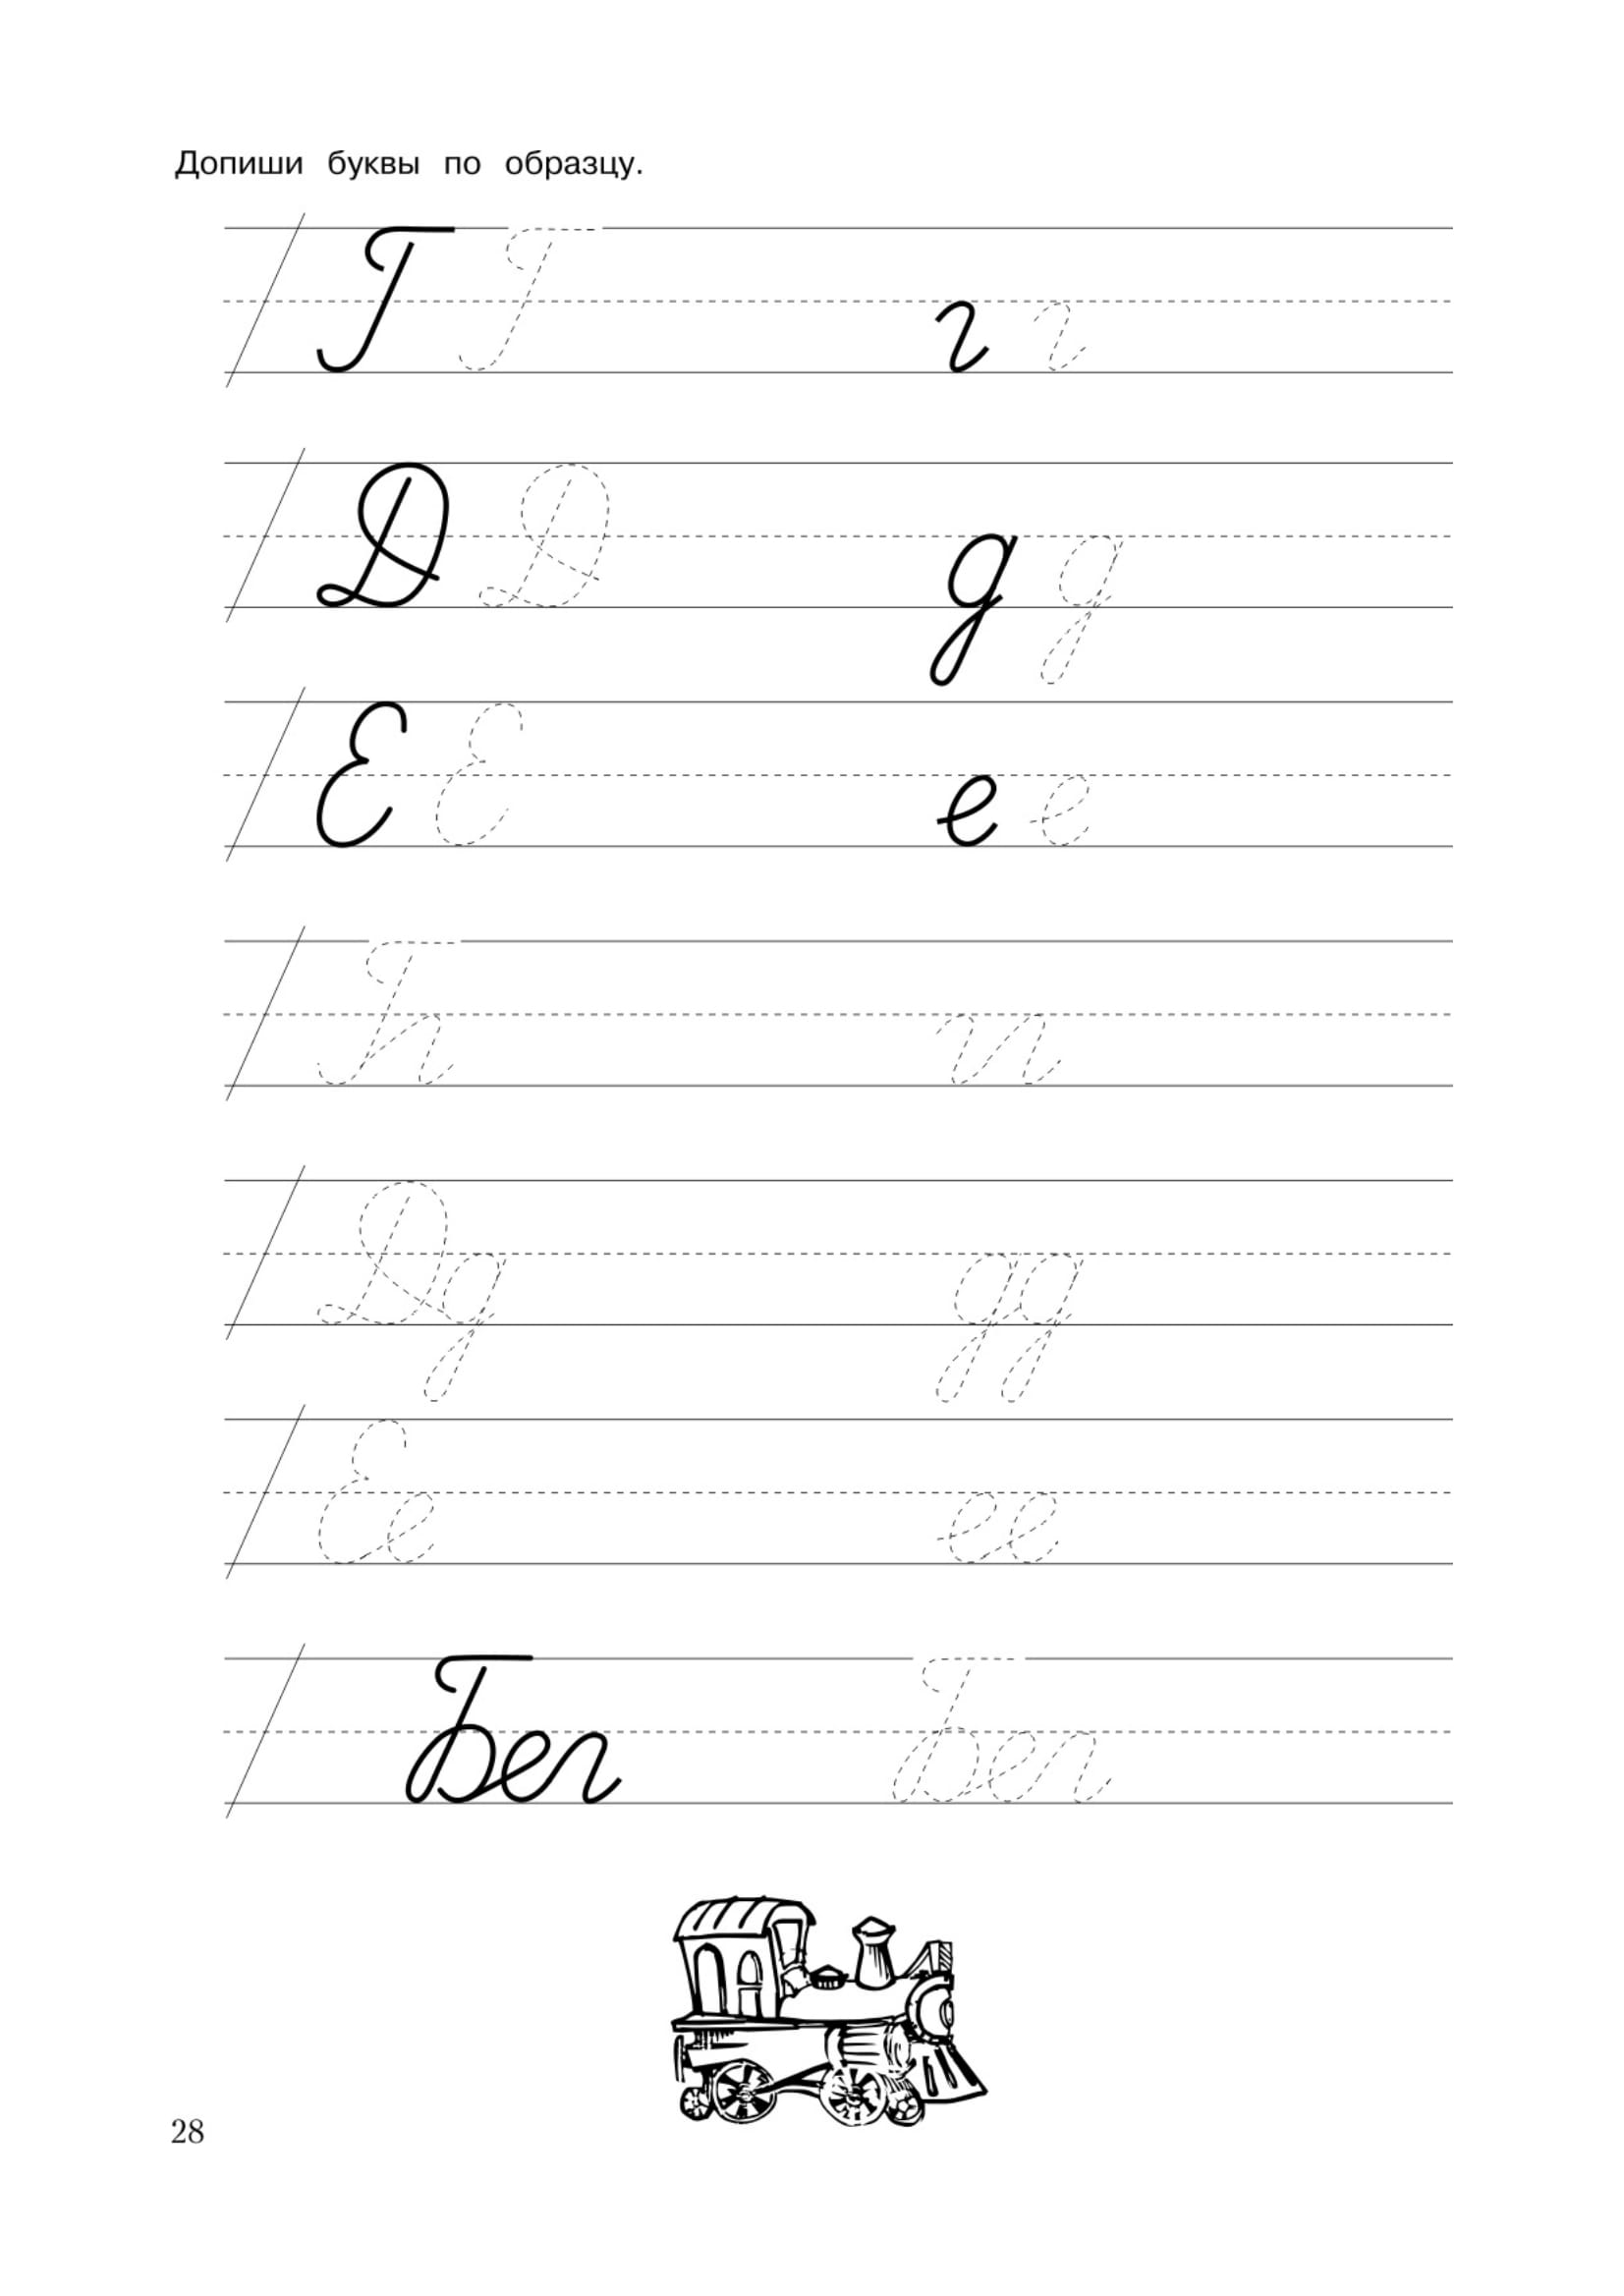 Допиши буквы по образцу.
Г Г г г
Д Д д д
Е Е е е
Гг гг
Дд дд
Ее ее
Бег Бег
28